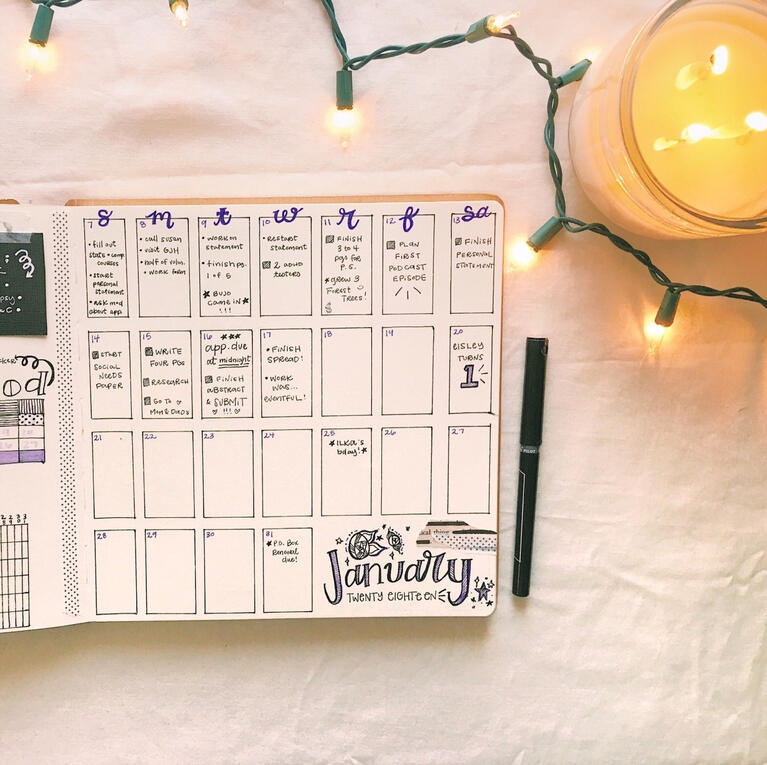 s m t w r f sa
7
• fill out
stats + comp.
courses
• start
personal
statement
• ask md
about app.
8
• call susan
• visit GJH
• work form
9
• work on
statement
• finish pg.
1 of 5
★ BUJO
CAME IN ★
!!!
10
• RESTART
STATEMENT
11
FINISH
3 to 4
pgs for
P.S.
★ grow 3
Forest
Trees!
12
PLAN
FIRST
PODCAST
EPISODE
13
FINISH
PERSONAL
STATEMENT
14
START
SOCIAL
NEEDS
PAPER
15
WRITE
FOUR PGS
RESEARCH
GO TO
Mom & Dad's
16
★★★
app. due
at midnight
FINISH
ABSTRACT
& SUBMIT
!!!
17
• FINISH
SPREAD!
• WORK
WAS...
EVENTFUL!
18
19
20
EISLEY
TURNS
1
21
22
23
24
25
★ ILKA'S
bday! ★
26
27
28
29
30
31
★ P.O. Box
Renewal
due!
ical thing
January
TWENTY EIGHTEEN
PILOT